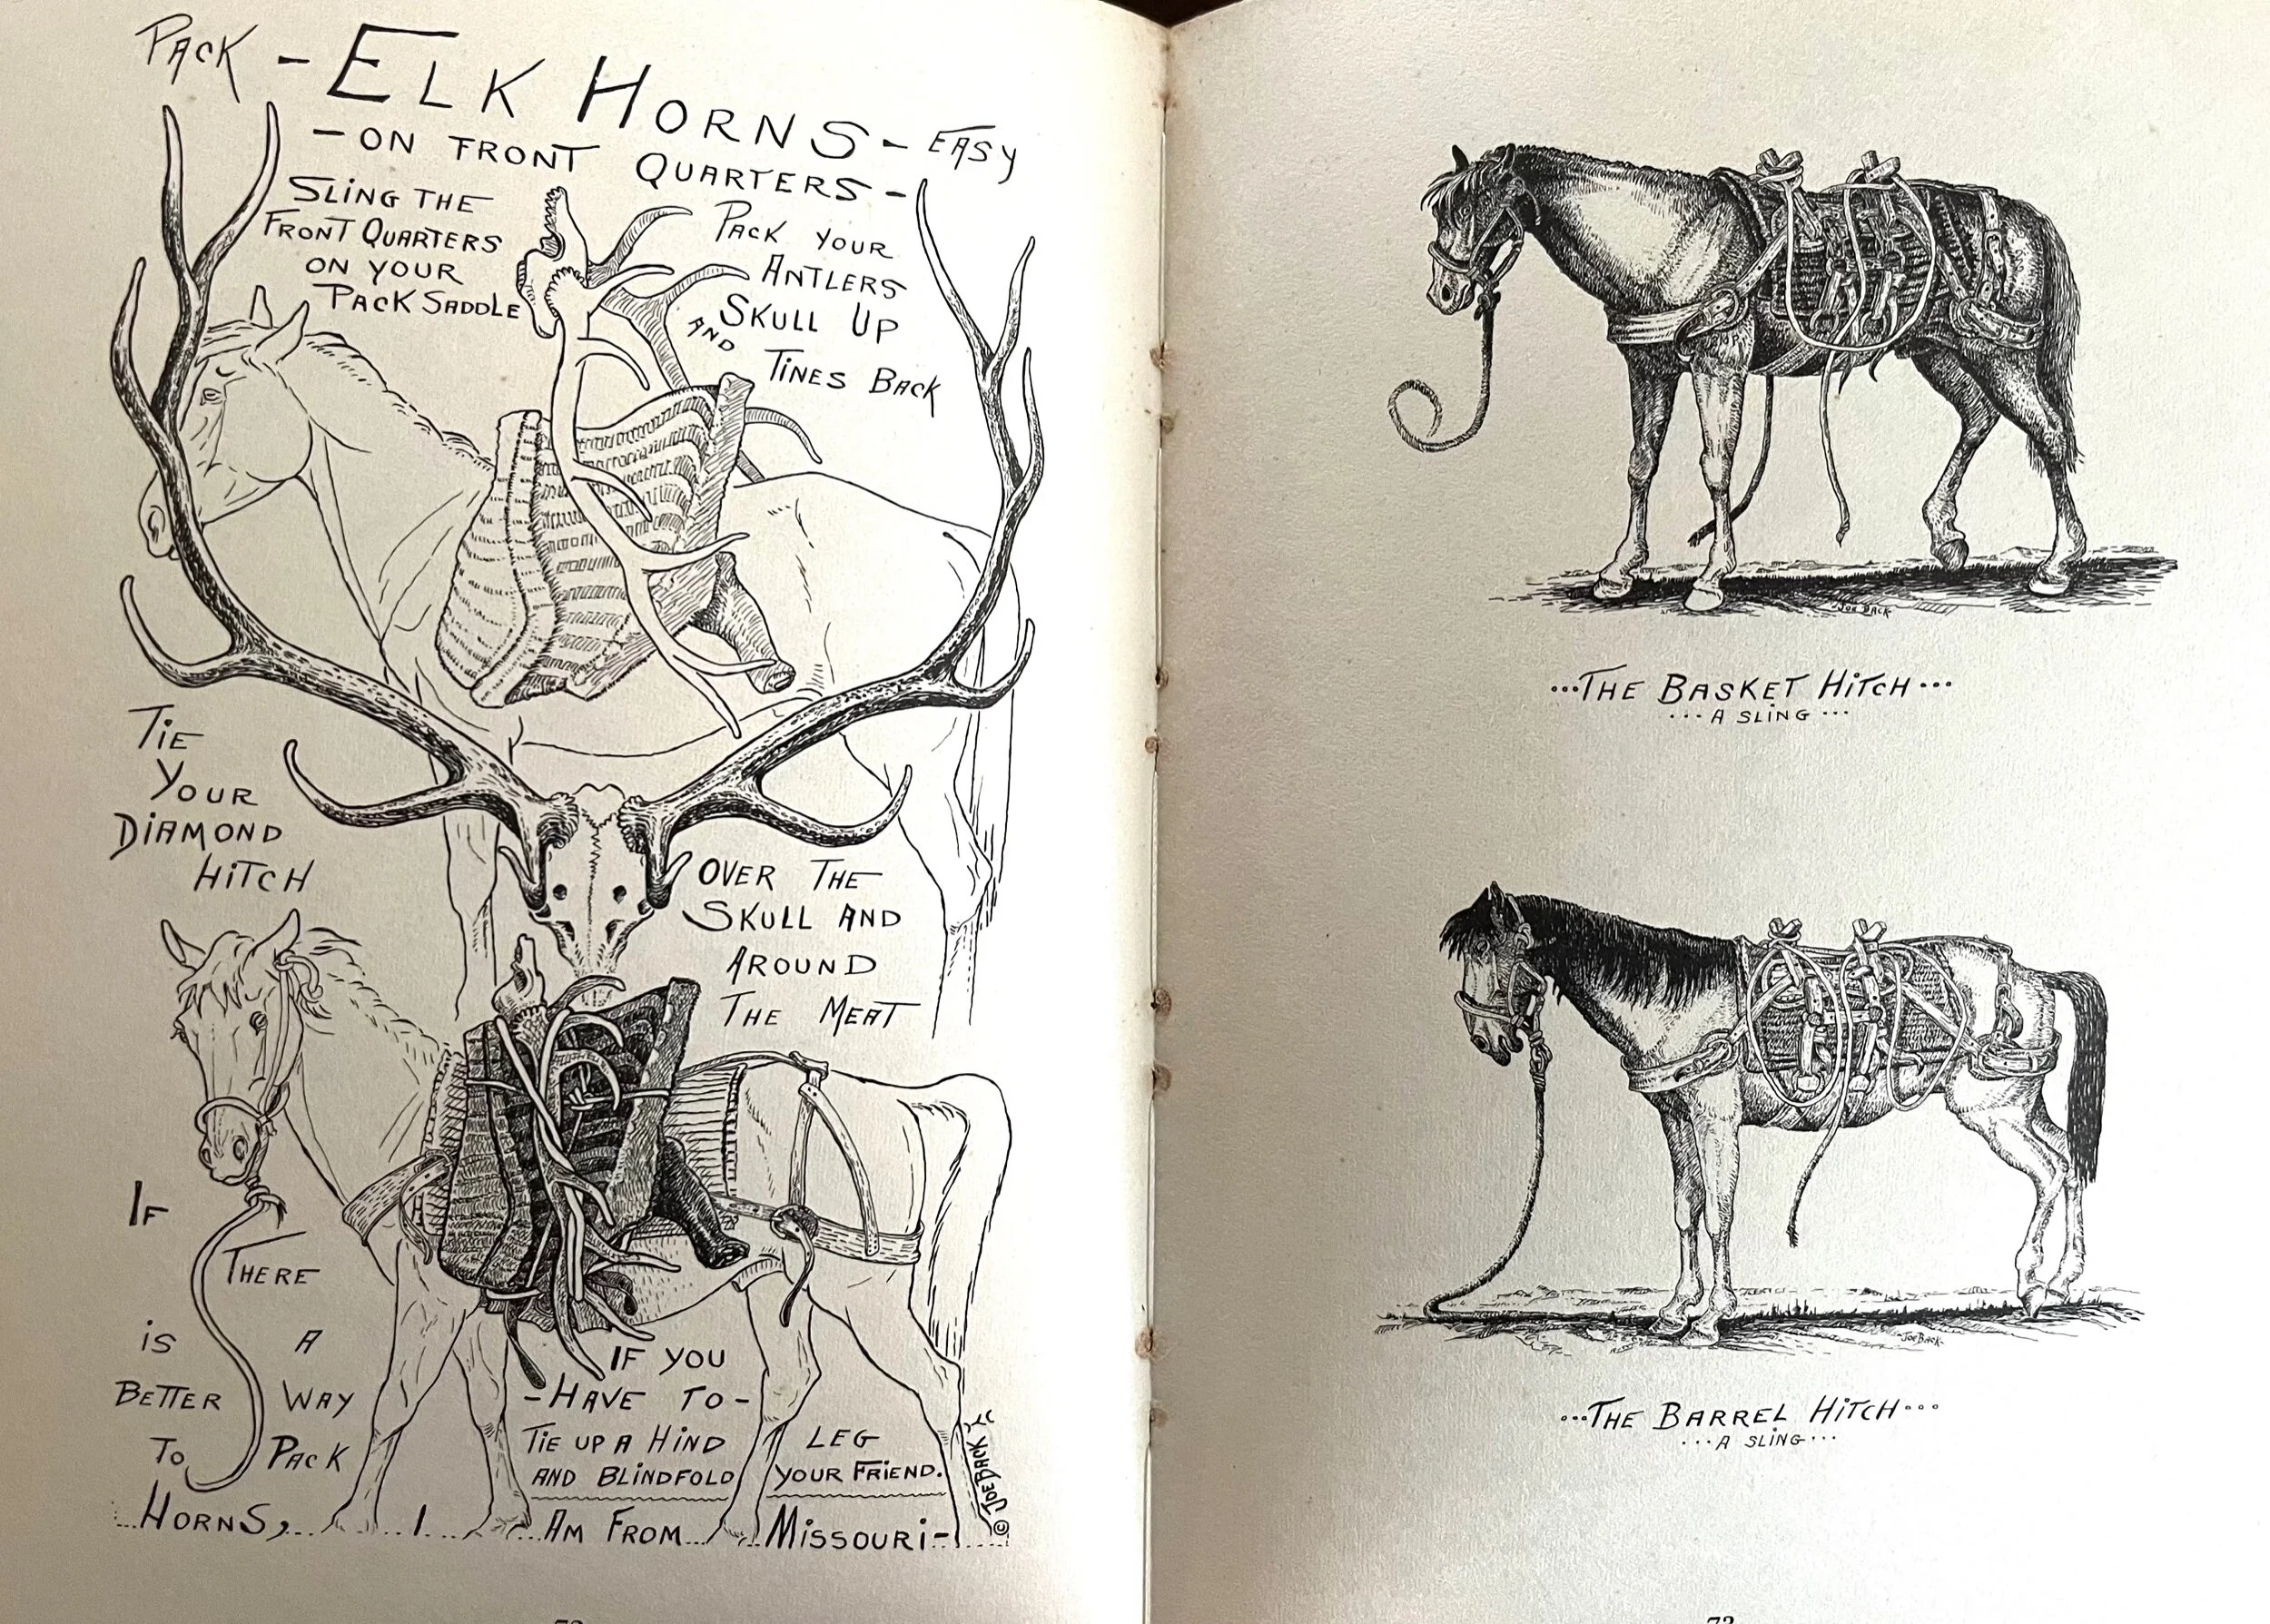 PACK - ELK HORNS - EASY
- ON FRONT QUARTERS -
SLING THE
FRONT QUARTERS
ON YOUR
PACK SADDLE
PACK YOUR
ANTLERS
SKULL UP
AND
TINES BACK
TIE
YOUR
DIAMOND
HITCH
OVER THE
SKULL AND
AROUND
THE MEAT
IF YOU
- HAVE TO -
TIE UP A HIND LEG
AND BLINDFOLD YOUR FRIEND.
IF
THERE
IS A
BETTER WAY
TO PACK
HORNS, I AM FROM MISSOURI -
© JOE BACK
JOE BACK
...THE BASKET HITCH...
...A SLING...
JOE BACK
...THE BARREL HITCH...
...A SLING...
73